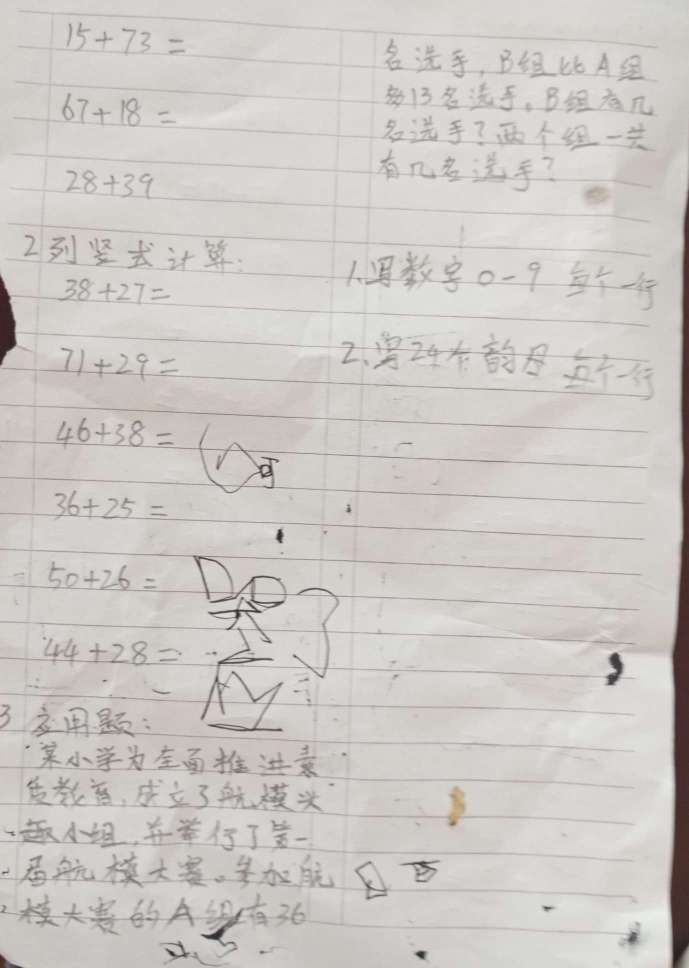 15+73=
67+18=
28+39
2 列竖式计算:
38+27=
71+29=
46+38=
36+25=
50+26=
44+28=
3 应用题:
某小学为全面推进素
质教育,成立了航模兴
趣小组,并举行了第一
届航模大赛。参加航
模大赛的A组有36
名选手,B组比A组
多13名选手,B组有几
名选手?两个组一共
有几名选手?
1.写数字0-9 每个一行
2.写24个韵母 每个一行